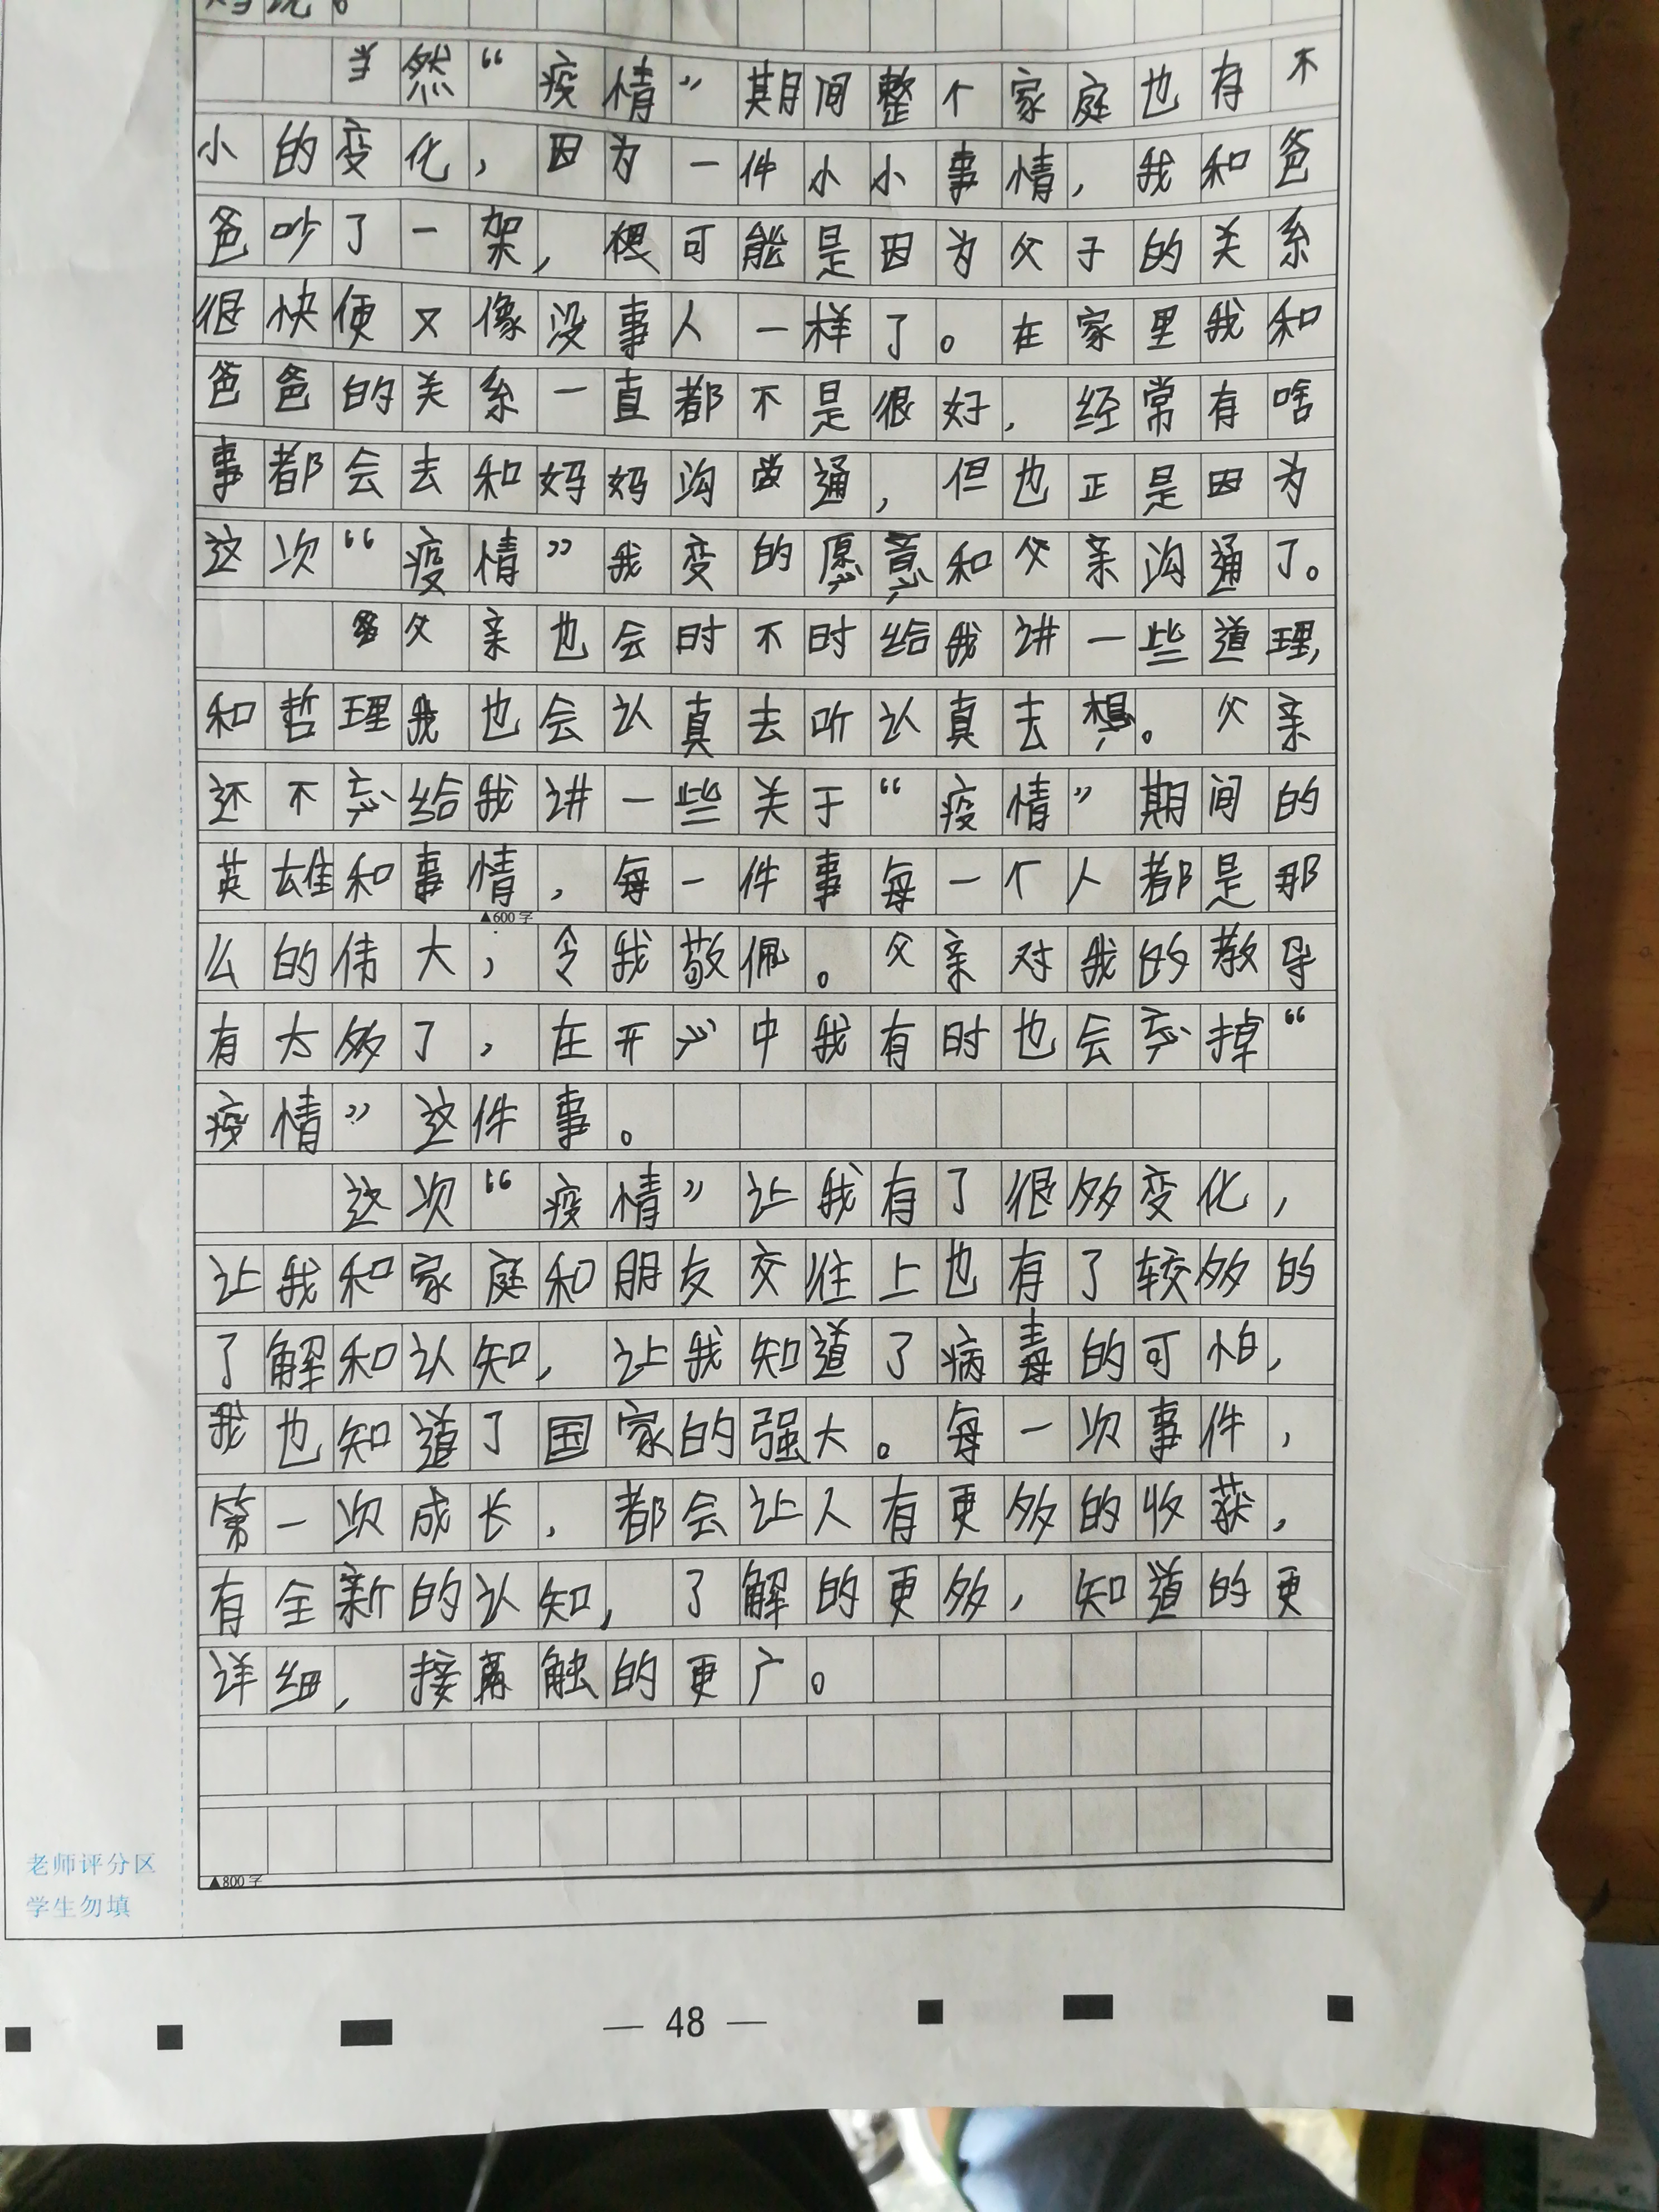 当然“疫情”期间整个家庭也有不
小的变化，因为一件小小事情，我和爸
爸吵了一架，很可能是因为父子的关系
很快便又像没事人一样了。在家里我和
爸爸的关系一直都不是很好，经常有啥
事都会去和妈妈沟通，但也正是因为
这次“疫情”我变的愿意和父亲沟通了。
父亲也会时不时给我讲一些道理，
和哲理我也会认真去听认真去想。父亲
还不忘给我讲一些关于“疫情”期间的
英雄和事情，每一件事每一个人都是那
▲600字
么的伟大，令我敬佩。父亲对我的教导
有太多了，在开心中我有时也会忘掉“
疫情”这件事。
这次“疫情”让我有了很多变化，
让我和家庭和朋友交往上也有了较多的
了解和认知，让我知道了病毒的可怕，
我也知道了国家的强大。每一次事件，
第一次成长，都会让人有更多的收获，
有全新的认知，了解的更多，知道的更
详细，接触的更广。
▲800字
老师评分区
学生勿填
— 48 —